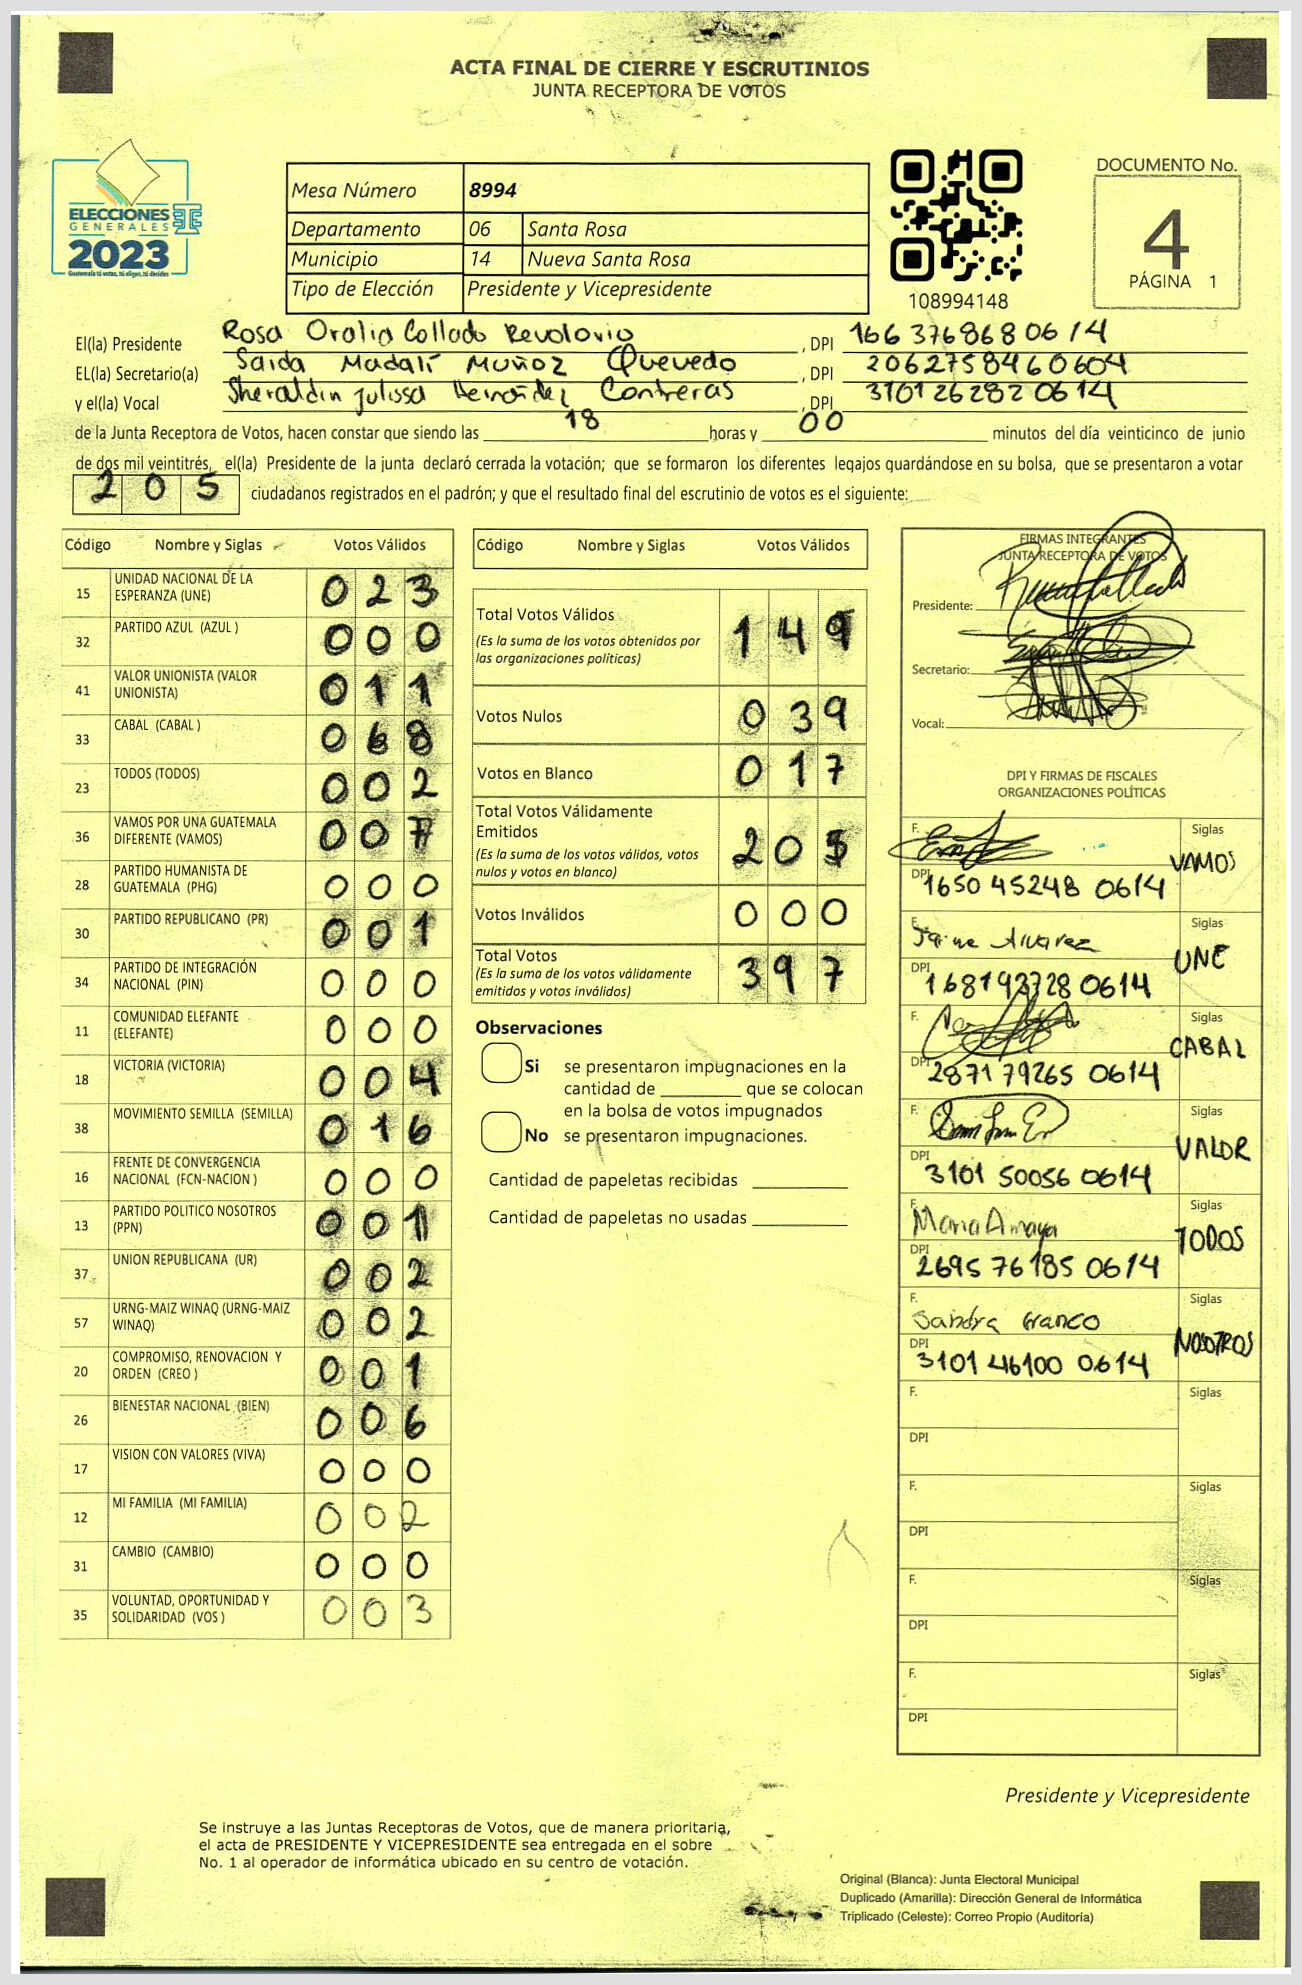 ACTA FINAL DE CIERRE Y ESCRUTINIOS
JUNTA RECEPTORA DE VOTOS
ELECCIONES
GENERALES
2023
Guatemala tú votas, tú eliges, tú decides
Mesa Número 8994
Departamento 06 Santa Rosa
Municipio 14 Nueva Santa Rosa
Tipo de Elección Presidente y Vicepresidente
108994148
DOCUMENTO No.
4
PÁGINA 1
El(la) Presidente Rosa Oralia Collado Revolorio, DPI 1663768680614
EL(la) Secretario(a) Saida Madalí Muñoz Quevedo, DPI 2062758460604
y el(la) Vocal Sheraldin julissa Hernández Contreras, DPI 3101262820614
de la Junta Receptora de Votos, hacen constar que siendo las 18 horas y 00 minutos del día veinticinco de junio
de dos mil veintitrés, el(la) Presidente de la junta declaró cerrada la votación; que se formaron los diferentes legajos guardándose en su bolsa, que se presentaron a votar
205 ciudadanos registrados en el padrón; y que el resultado final del escrutinio de votos es el siguiente:
Código Nombre y Siglas Votos Válidos
15 UNIDAD NACIONAL DE LA ESPERANZA (UNE) 023
32 PARTIDO AZUL (AZUL ) 000
41 VALOR UNIONISTA (VALOR UNIONISTA) 011
33 CABAL (CABAL ) 068
23 TODOS (TODOS) 002
36 VAMOS POR UNA GUATEMALA DIFERENTE (VAMOS) 007
28 PARTIDO HUMANISTA DE GUATEMALA (PHG) 000
30 PARTIDO REPUBLICANO (PR) 001
34 PARTIDO DE INTEGRACIÓN NACIONAL (PIN) 000
11 COMUNIDAD ELEFANTE (ELEFANTE) 000
18 VICTORIA (VICTORIA) 004
38 MOVIMIENTO SEMILLA (SEMILLA) 016
16 FRENTE DE CONVERGENCIA NACIONAL (FCN-NACION ) 000
13 PARTIDO POLITICO NOSOTROS (PPN) 001
37 UNION REPUBLICANA (UR) 002
57 URNG-MAIZ WINAQ (URNG-MAIZ WINAQ) 002
20 COMPROMISO, RENOVACION Y ORDEN (CREO ) 001
26 BIENESTAR NACIONAL (BIEN) 006
17 VISION CON VALORES (VIVA) 000
12 MI FAMILIA (MI FAMILIA) 002
31 CAMBIO (CAMBIO) 000
35 VOLUNTAD, OPORTUNIDAD Y SOLIDARIDAD (VOS ) 003
Código Nombre y Siglas Votos Válidos
Total Votos Válidos 149
(Es la suma de los votos obtenidos por
las organizaciones políticas)
Votos Nulos 039
Votos en Blanco 017
Total Votos Válidamente
Emitidos 205
(Es la suma de los votos válidos, votos
nulos y votos en blanco)
Votos Inválidos 000
Total Votos 397
(Es la suma de los votos válidamente
emitidos y votos inválidos)
Observaciones
Si se presentaron impugnaciones en la
cantidad de ________ que se colocan
en la bolsa de votos impugnados
No se presentaron impugnaciones.
Cantidad de papeletas recibidas
Cantidad de papeletas no usadas
FIRMAS INTEGRANTES
JUNTA RECEPTORA DE VOTOS
Presidente:
Secretario:
Vocal:
DPI Y FIRMAS DE FISCALES
ORGANIZACIONES POLÍTICAS
F. Siglas VAMOS
DPI 1650 45248 0614
F. Jaime Alvarez Siglas UNE
DPI 168193728 0614
F. Siglas CABAL
DPI 2871 79265 0614
F. Siglas VALOR
DPI 3101 50056 0614
F. Maria Amaya Siglas TODOS
DPI 2695 76185 0614
F. Sandra Franco Siglas NOSOTROS
DPI 3101 46100 0614
F. Siglas
DPI
F. Siglas
DPI
F. Siglas
DPI
F. Siglas
DPI
Presidente y Vicepresidente
Se instruye a las Juntas Receptoras de Votos, que de manera prioritaria,
el acta de PRESIDENTE Y VICEPRESIDENTE sea entregada en el sobre
No. 1 al operador de informática ubicado en su centro de votación.
Original (Blanca): Junta Electoral Municipal
Duplicado (Amarilla): Dirección General de Informática
Triplicado (Celeste): Correo Propio (Auditoria)